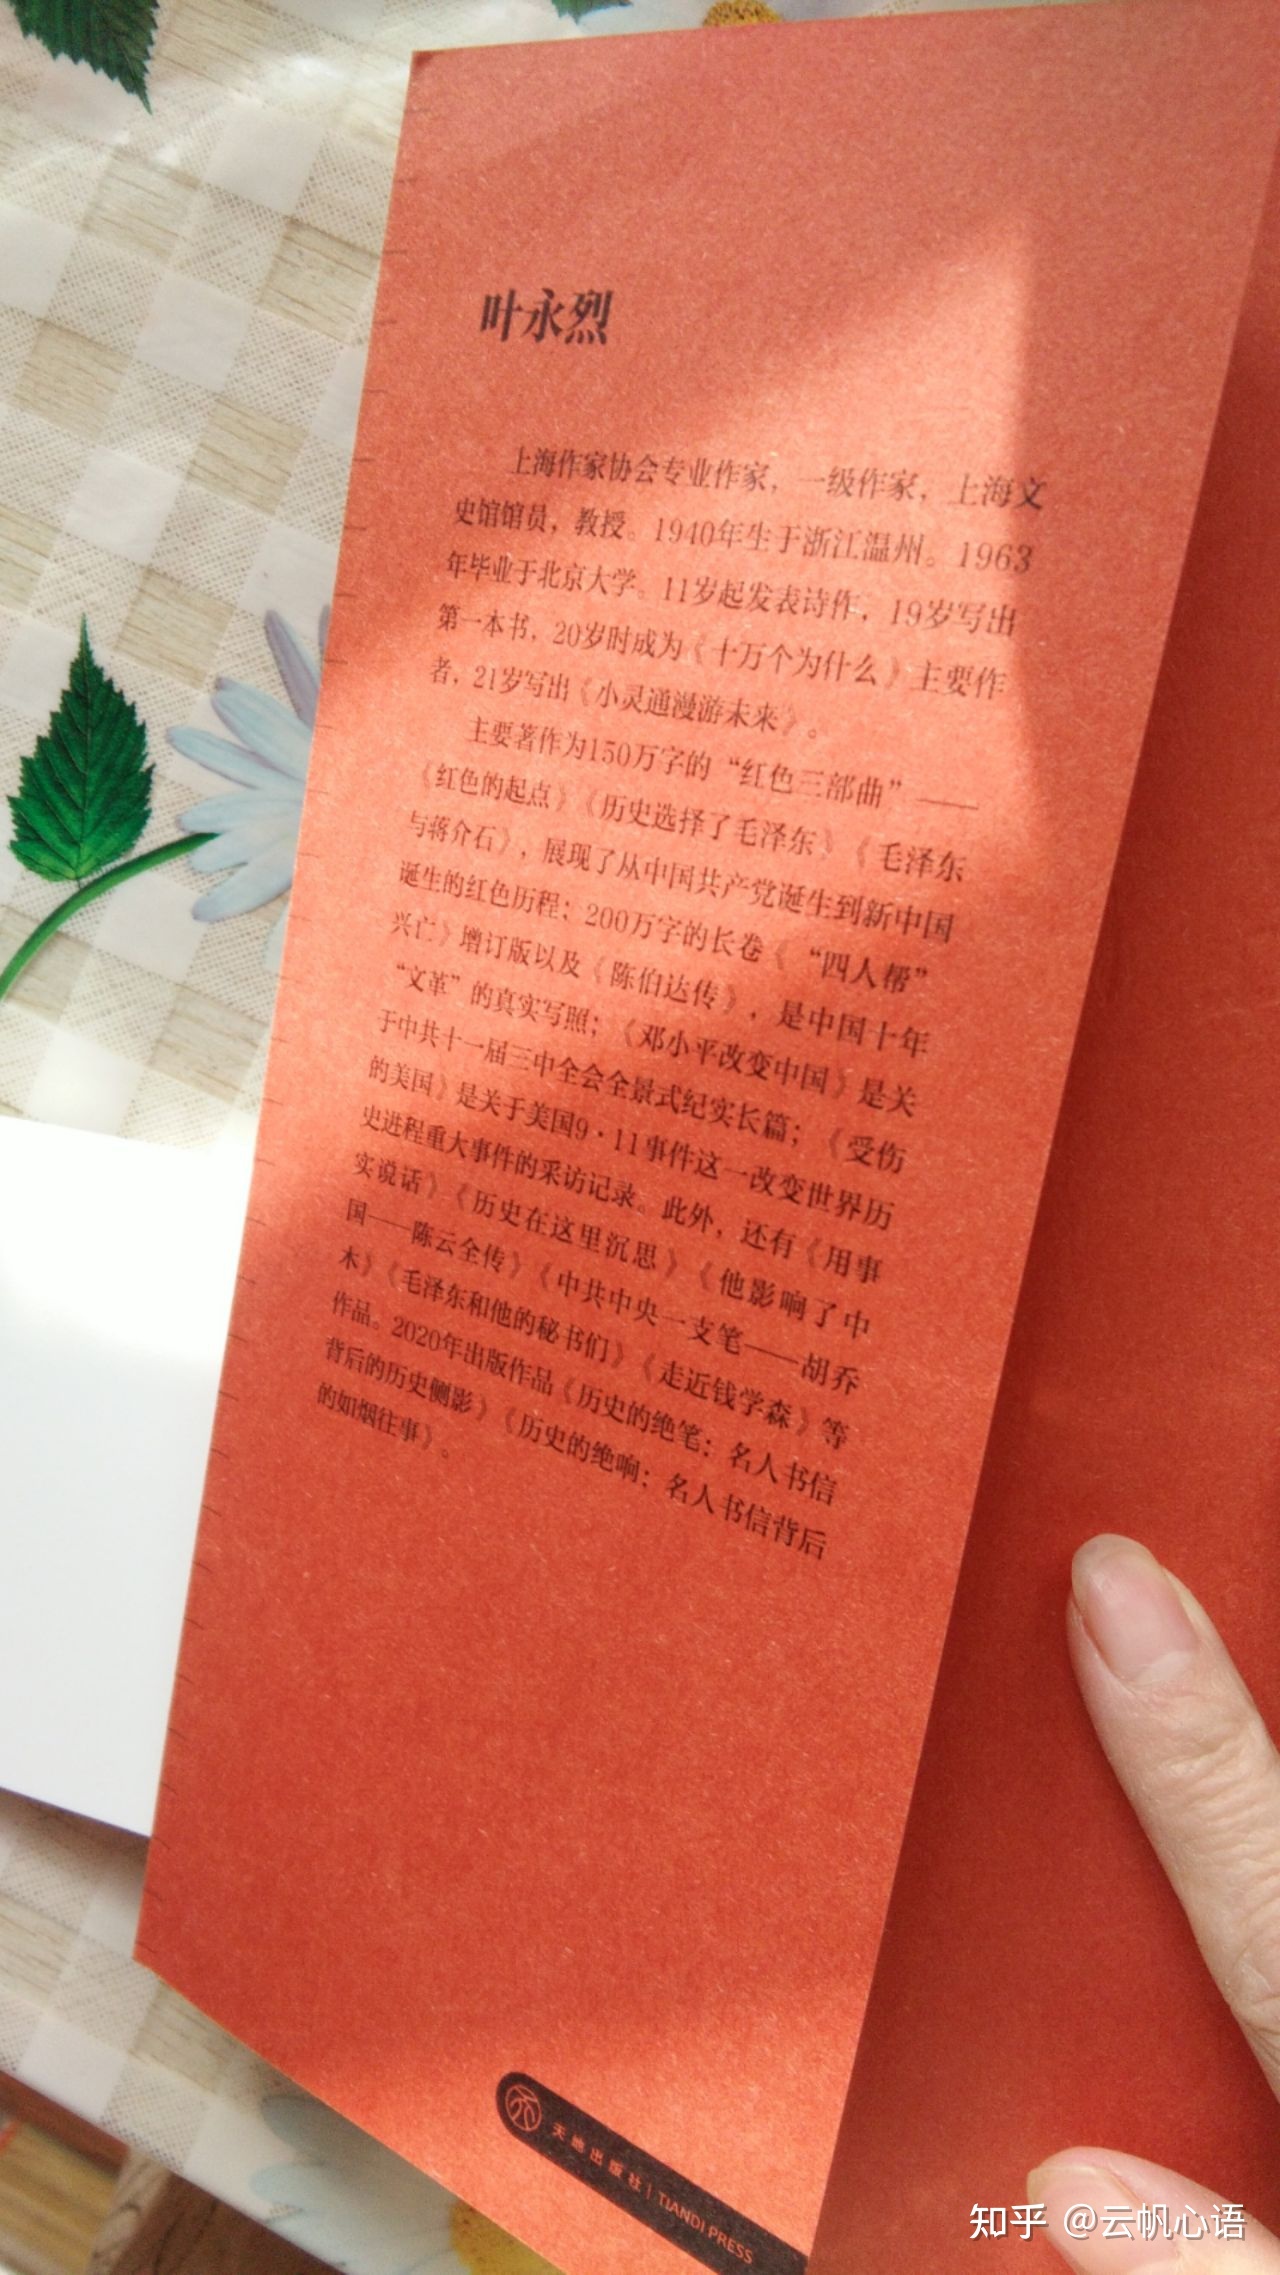 叶永烈
上海作家协会专业作家，一级作家，上海文
史馆馆员，教授。1940年生于浙江温州。1963
年毕业于北京大学。11岁起发表诗作，19岁写出
第一本书，20岁时成为《十万个为什么》主要作
者，21岁写出《小灵通漫游未来》。
主要著作为150万字的“红色三部曲”——
《红色的起点》《历史选择了毛泽东》《毛泽东
与蒋介石》，展现了从中国共产党诞生到新中国
诞生的红色历程；200万字的长卷《“四人帮”
兴亡》增订版以及《陈伯达传》，是中国十年
“文革”的真实写照；《邓小平改变中国》是关
于中共十一届三中全会全景式纪实长篇；《受伤
的美国》是关于美国9·11事件这一改变世界历
史进程重大事件的采访记录。此外，还有《用事
实说话》《历史在这里沉思》《他影响了中
国——陈云全传》《中共中央一支笔——胡乔
木》《毛泽东和他的秘书们》《走近钱学森》等
作品。2020年出版作品《历史的绝笔：名人书信
背后的历史侧影》《历史的绝响：名人书信背后
的如烟往事》。
天地出版社 | TIANDI PRESS
知乎 @云帆心语